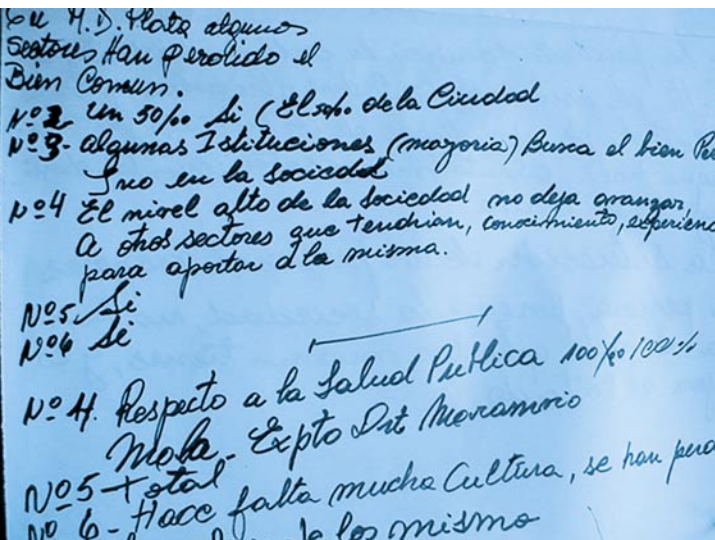 En M.D. Plata algunos
Sectores Han perdido el
Bien Comun.
Nº2 Un 50% Si (El 50% de la Ciudad
Nº3- algunas Istituciones (mayoria) Busca el bien Per
Ino en la Sociedad
Nº4 El nivel alto de la Sociedad no deja avanzar,
A otros sectores que tendrian, conocimiento, experienc
para aportar a la misma.
Nº5 Si
Nº6 Si
Nº4. Respecto a la Salud Publica 100% 100%
Mala - Expto
Nº5 - Total
Nº 6 - Hace falta mucha Cultura, se han perd
de los mismo